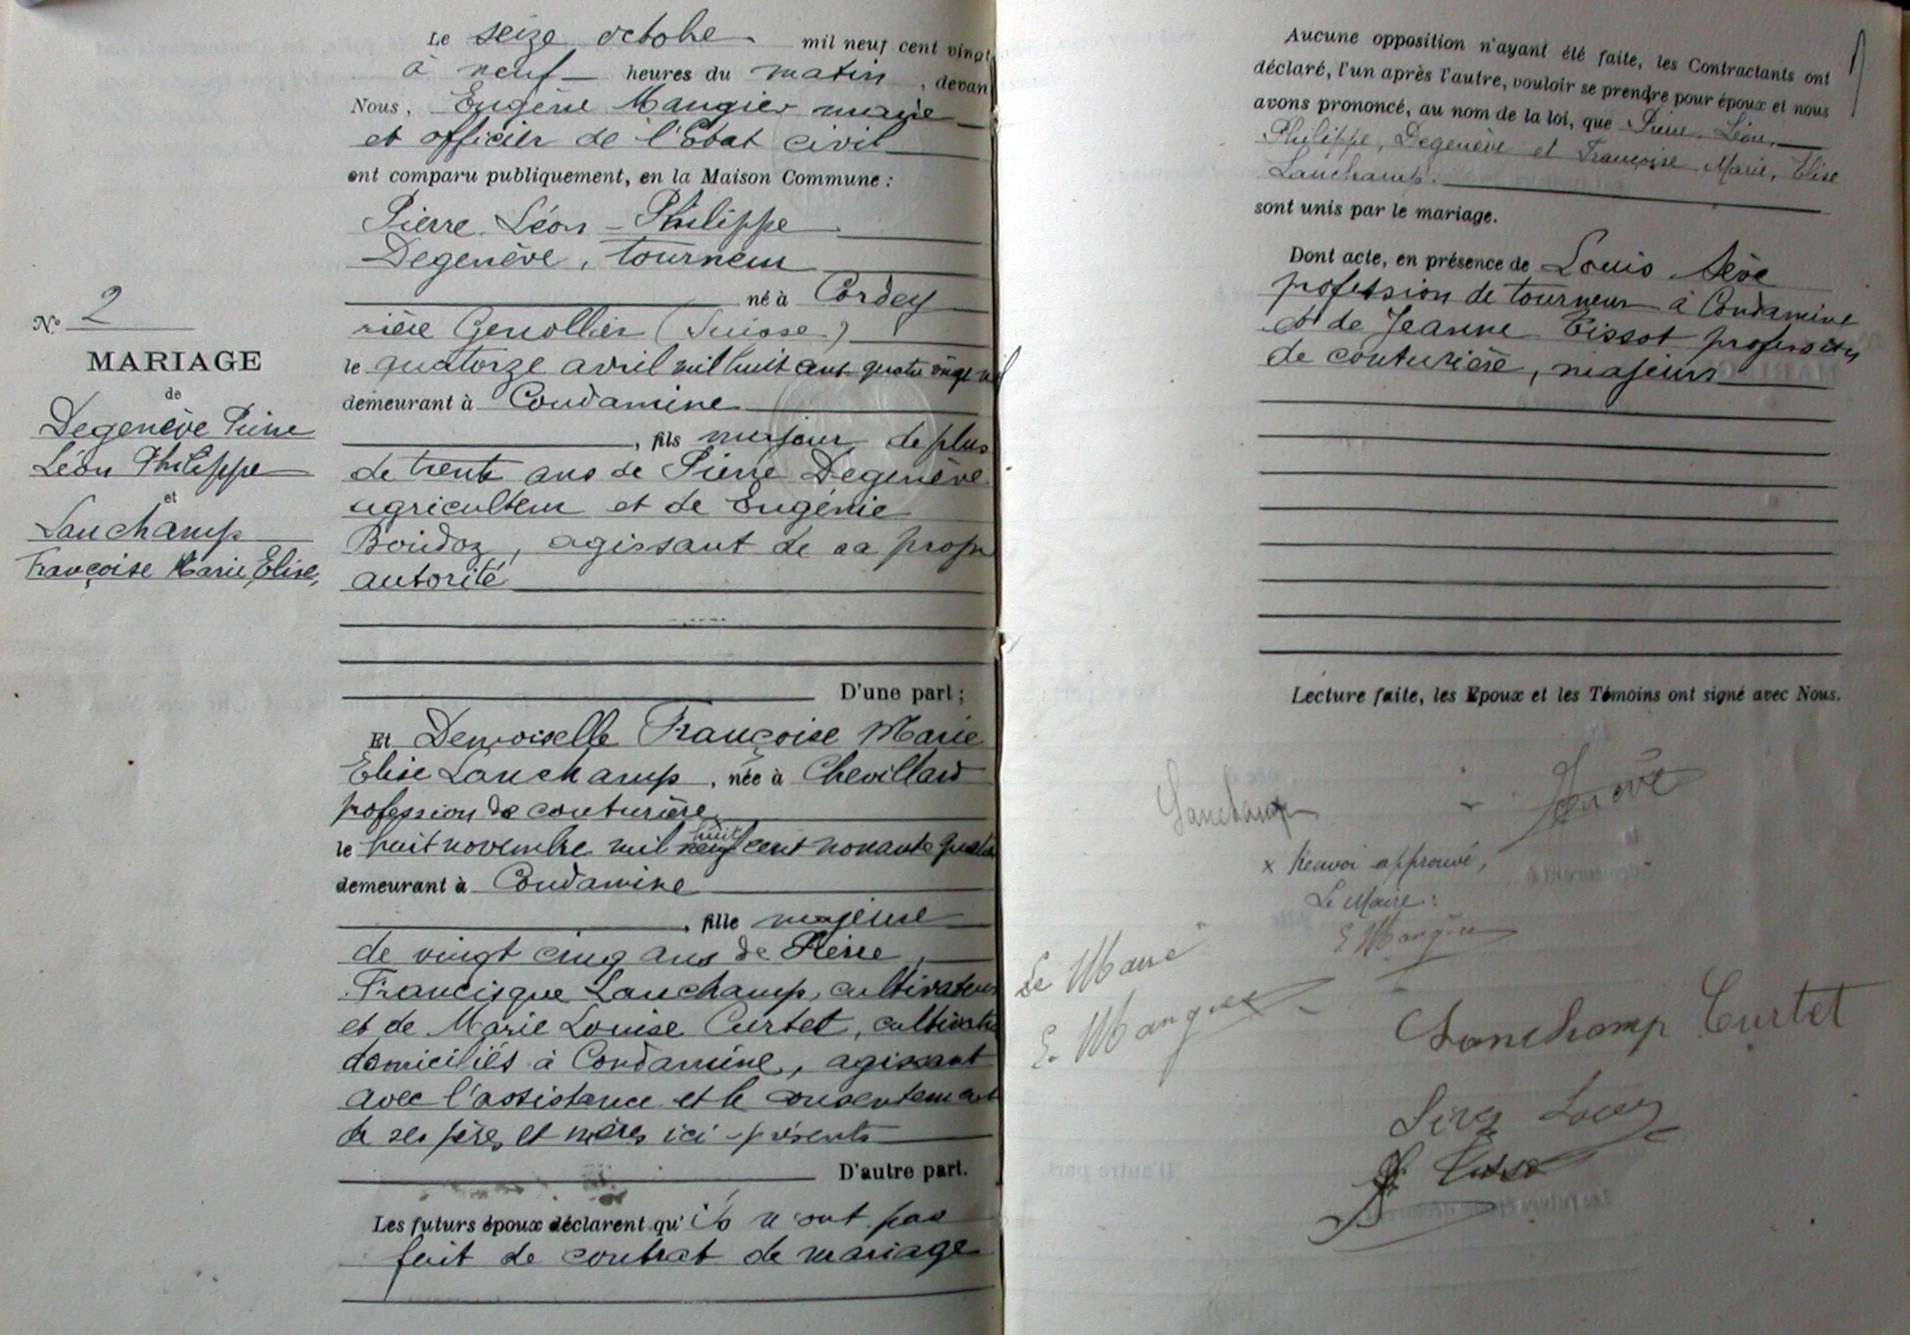 Le seize octobre mil neuf cent vingt
à neuf heures du matin, devan
Nous, Eugène Mangier maire
et officier de l'Etat civil
ont comparu publiquement, en la Maison Commune :
Pierre Léon - Philippe
Degenève, tourneur
né à Cordey
rière Genollier (Suisse)
le quatorze avril mil huit cent quatre vingt
demeurant à Condamine
, fils majeur de plus
de trente ans de Pierre Degenève
agriculteur et de Eugénie
Boidoz, agissant de sa propre
autorité
D'une part ;
N° 2
MARIAGE
de
Degenève Pierre
Léon Philippe
et
Lanchamp
Françoise Marie Elise,
Et Demoiselle Françoise Marie
Elise Lanchamp, née à Chevillard
profession de couturière
le huit novembre mil neuf huit cent nonante quatre
demeurant à Condamine
, fille majeure
de vingt cinq ans de Pierre
Francisque Lanchamp, cultivateur
et de Marie Louise Curtet, cultivatrice
domiciliés à Condamine, agissant
avec l'assistance et le consentement
de ses père et mère, ici - présents
D'autre part.
Les futurs époux déclarent qu'ils n'ont pas
fait de contrat de mariage
Aucune opposition n'ayant été faite, les Contractants ont
déclaré, l'un après l'autre, vouloir se prendre pour époux et nous
avons prononcé, au nom de la loi, que Pierre Léon,
Philippe, Degenève et Françoise, Marie, Elise
Lanchamp.
sont unis par le mariage.
Dont acte, en présence de Louis Sève
profession de tourneur à Condamine
et de Jeanne Tissot profession
de couturière, majeurs
Lecture faite, les Epoux et les Témoins ont signé avec Nous.
Lanchamp
x Renvoi approuvé,
Le Maire :
E Mangier
Le Maire
E. Mangier
Lanchamp Curtet